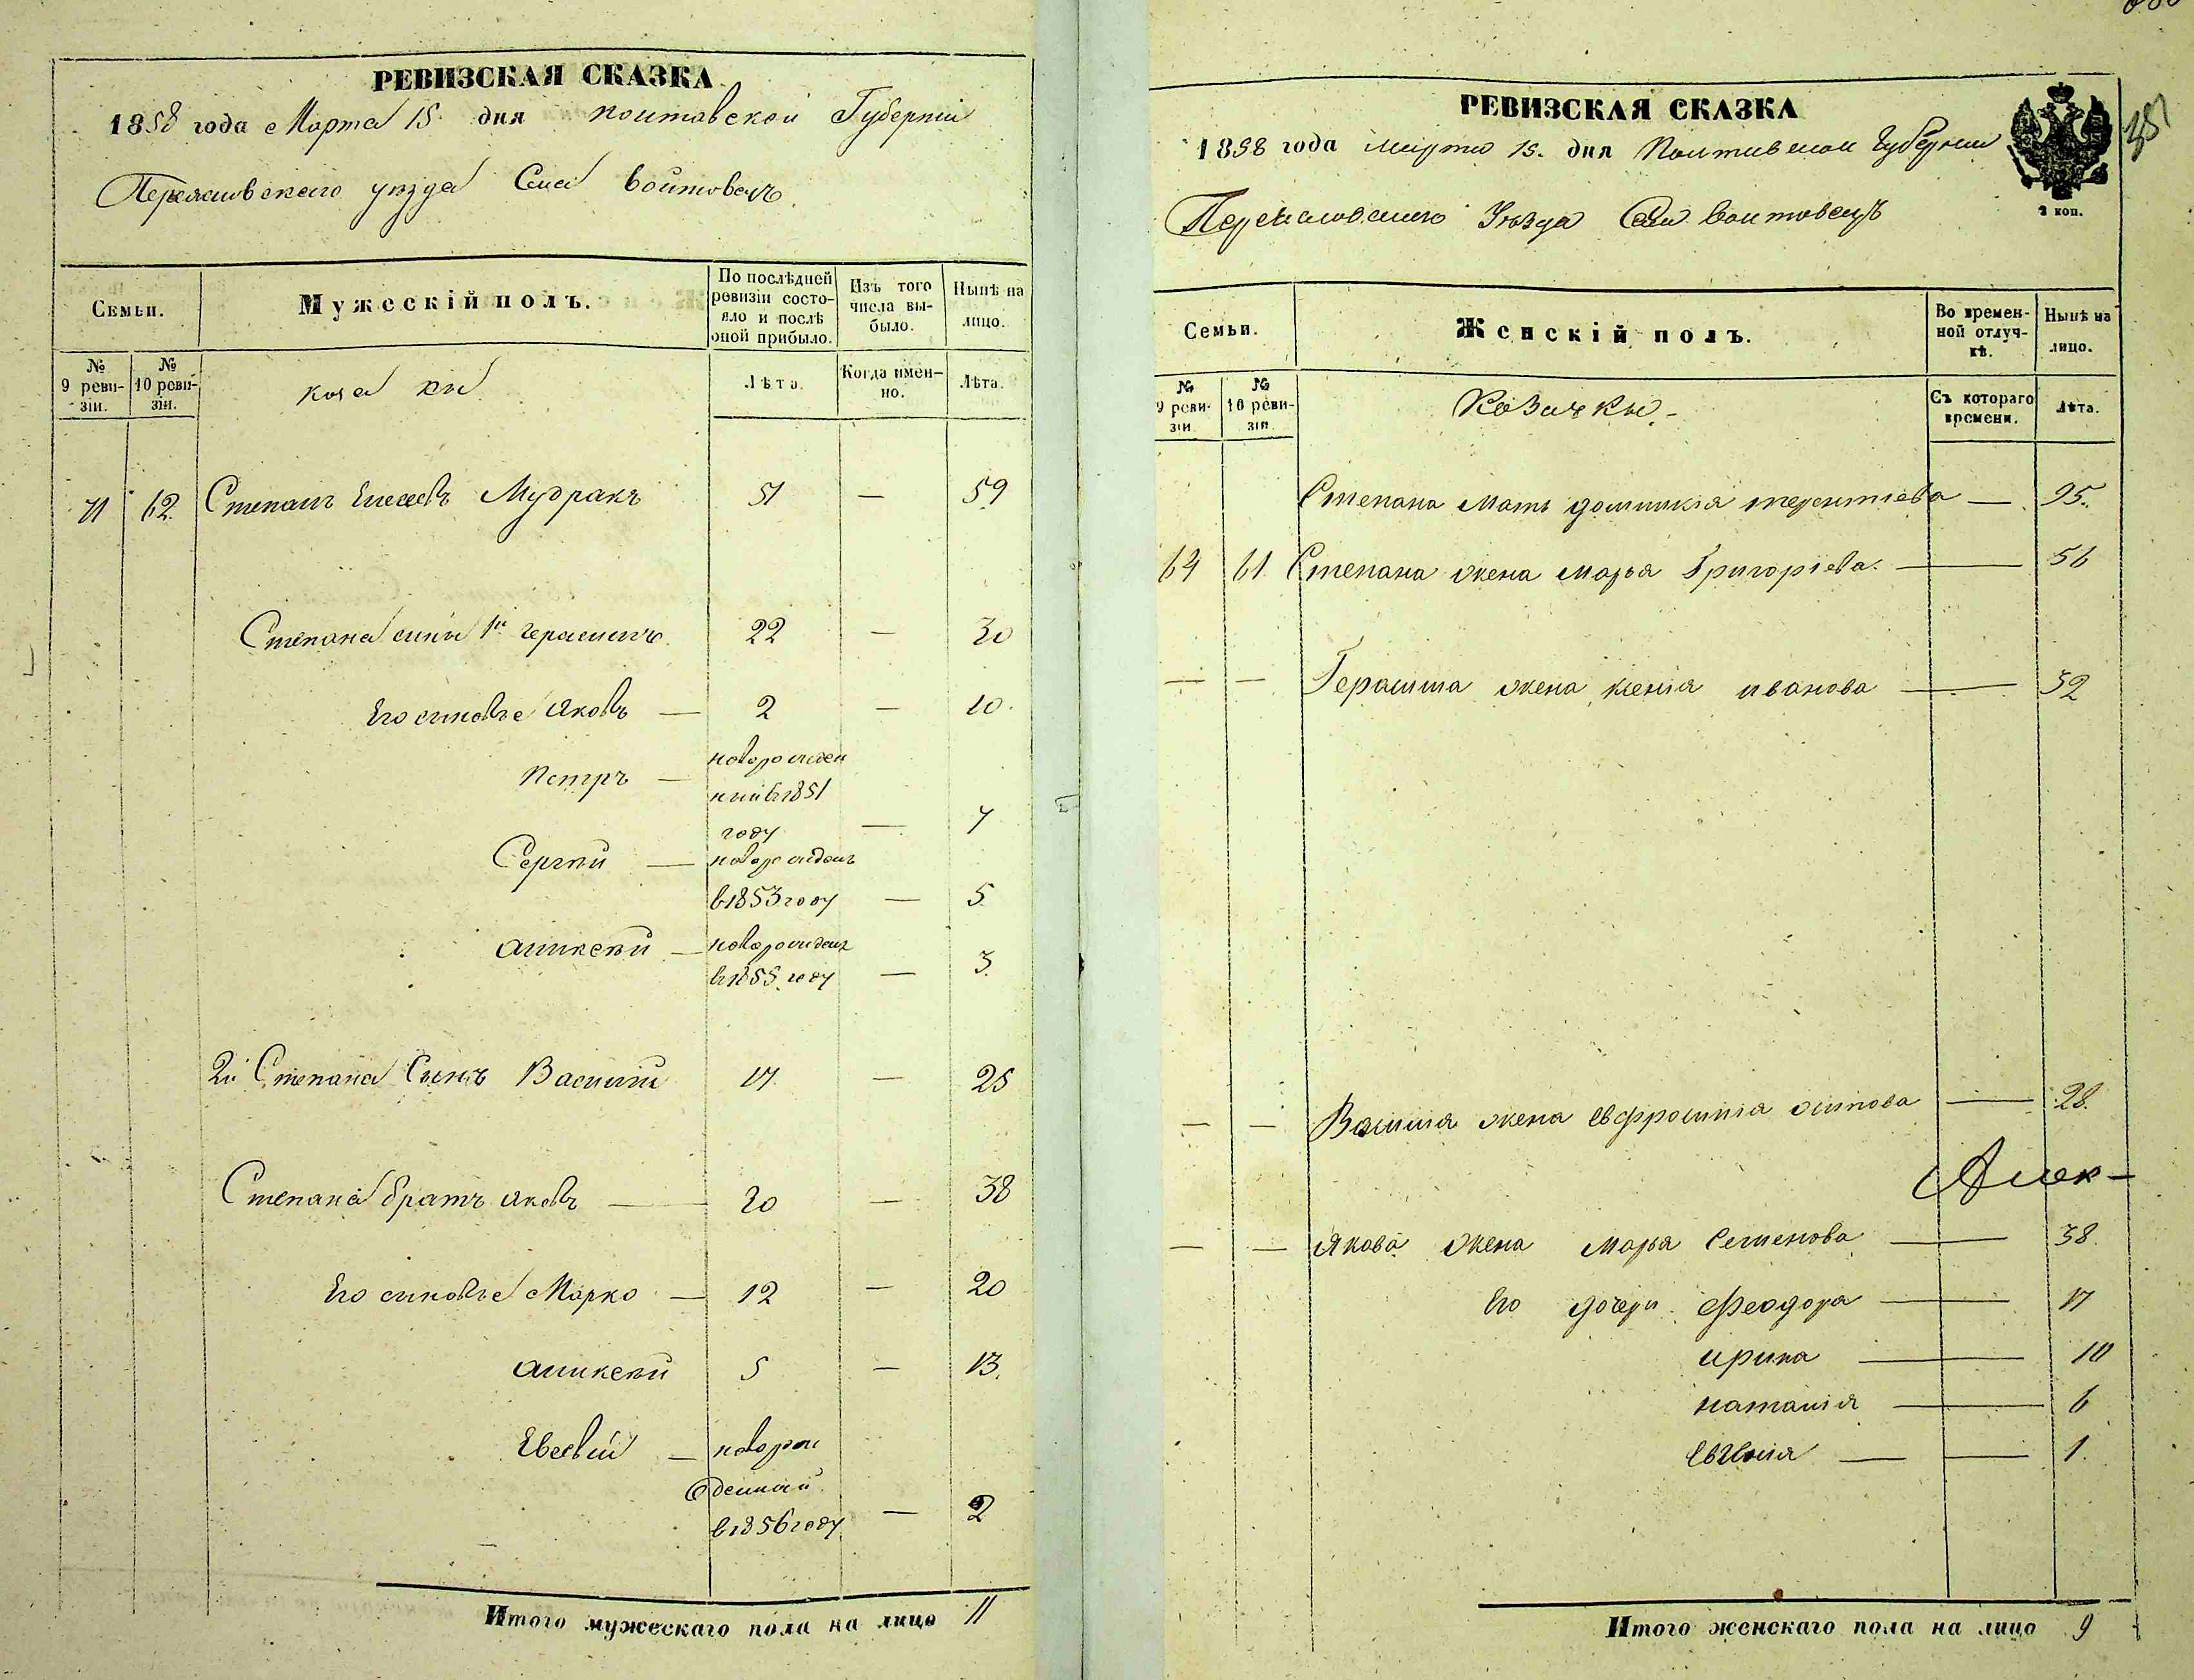 РЕВИЗСКАЯ СКАЗКА
1858 года Марта 15 дня Полтавской Губернии
Переяславскаго уезда Села Войтовецъ
Семьи.
Мужескій полъ.
По послѣдней ревизіи состояло и послѣ оной прибыло.
Изъ того числа выбыло.
Нынѣ на лицо.
№ 9 ревизіи.
№ 10 ревизіи.
козаки
Лѣта.
Когда именно.
Лѣта.
71 62 Степанъ Елесеевъ Мудракъ 51 — 59
Степана сыны 1й Герасимъ 22 — 30
Его сыновье Яковъ — 2 — 10.
Петръ — новорожден
ный в 1851
году — 7
Сергѣй — новорожденъ
в 1853 году — 5
Аликсѣй — новорожденъ
в 1855 году — 3.
2й Степана Сынъ Василий 17 — 25
Степана братъ Яковъ — 30 — 38
Его сыновье Марко — 12 — 20
Аликсѣй 5 — 13.
Евсевий — новорож
денный
в 1856 году — 2
Итого мужескаго пола на лицо 11
РЕВИЗСКАЯ СКАЗКА
1858 года марта 15. дня Полтавской Губернии
Переяславскаго Уѣзда Села Войтовецъ
2 коп.
Семьи.
Женскій полъ.
Во временной отлучкѣ.
Нынѣ на лицо.
№ 9 ревизіи
№ 10 ревизіи.
Козачки
Съ котораго времени.
Лѣта.
Степана мать домникія терентіева — 95.
64 61 Степана жена марья Григоріева. — 56
— — Герасима жена ксенія иванова — 32
— — Василия жена евфросинія осипова — 28.
Алек-
— — Якова жена марья семенова — 38
Его дочери Феодора — 17
ирина — 10
наталия — 6
Евгенія — 1.
Итого женскаго пола на лицо 9